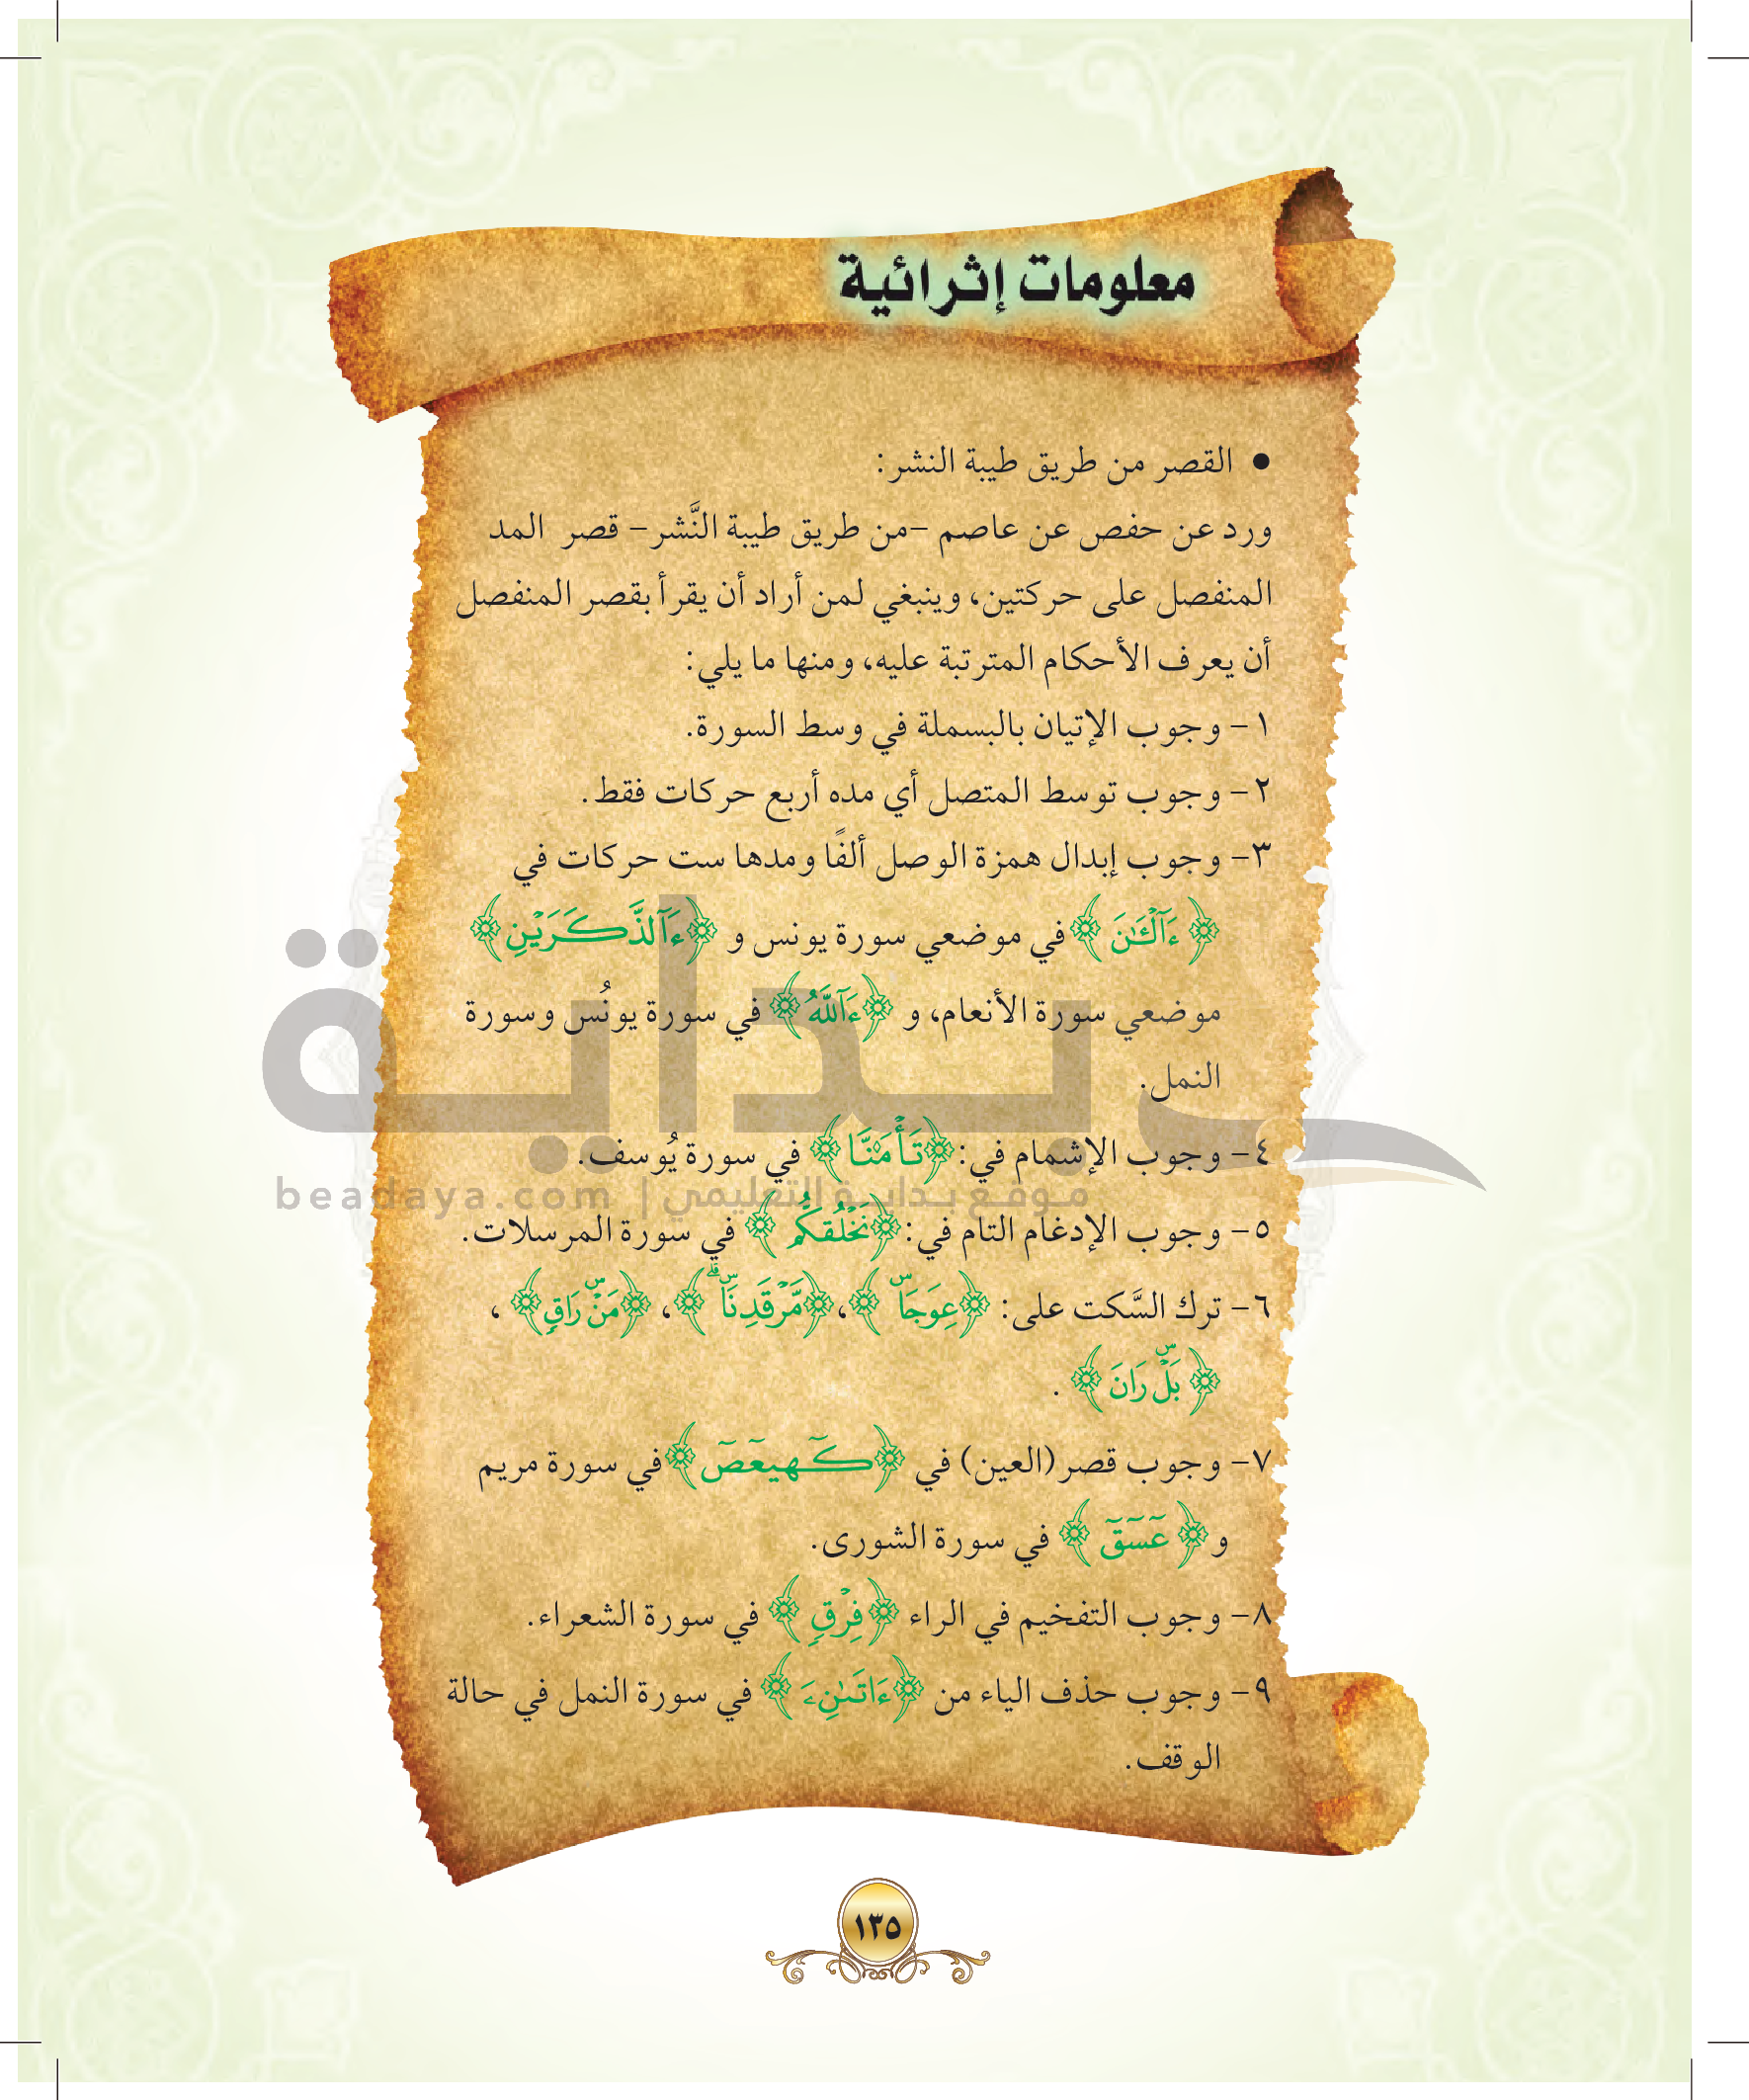 معلومات إثرائية
• القصر من طريق طيبة النشر:
ورد عن حفص عن عاصم -من طريق طيبة النَّشر- قصر المد
المنفصل على حركتين، وينبغي لمن أراد أن يقرأ بقصر المنفصل
أن يعرف الأحكام المترتبة عليه، ومنها ما يلي:
١- وجوب الإتيان بالبسملة في وسط السورة.
٢- وجوب توسط المتصل أي مده أربع حركات فقط.
٣- وجوب إبدال همزة الوصل ألفًا ومدها ست حركات في
﴿ءَآلْـَٰٔنَ﴾ في موضعي سورة يونس و ﴿ءَآلذَّكَرَيْنِ﴾
موضعي سورة الأنعام، و ﴿ءَآللَّهُ﴾ في سورة يونُس وسورة
النمل.
٤- وجوب الإشمام في: ﴿تَأْمَ۫نَّا﴾ في سورة يُوسف.
موقع بداية التعليمي | beadaya.com
بداية
٥- وجوب الإدغام التام في: ﴿نَخْلُقكُّم﴾ في سورة المرسلات.
٦- ترك السَّكت على: ﴿عِوَجَاۜ﴾، ﴿مَّرْقَدِنَاۜۗ﴾، ﴿مَنْۜ رَاقٍ﴾،
﴿بَلْۜ رَانَ﴾.
٧- وجوب قصر (العين) في ﴿كٓهيعٓصٓ﴾ في سورة مريم
و ﴿عٓسٓقٓ﴾ في سورة الشورى.
٨- وجوب التفخيم في الراء ﴿فِرْقٍ﴾ في سورة الشعراء.
٩- وجوب حذف الياء من ﴿ءَاتَىٰنِۦَ﴾ في سورة النمل في حالة
الوقف.
١٣٥